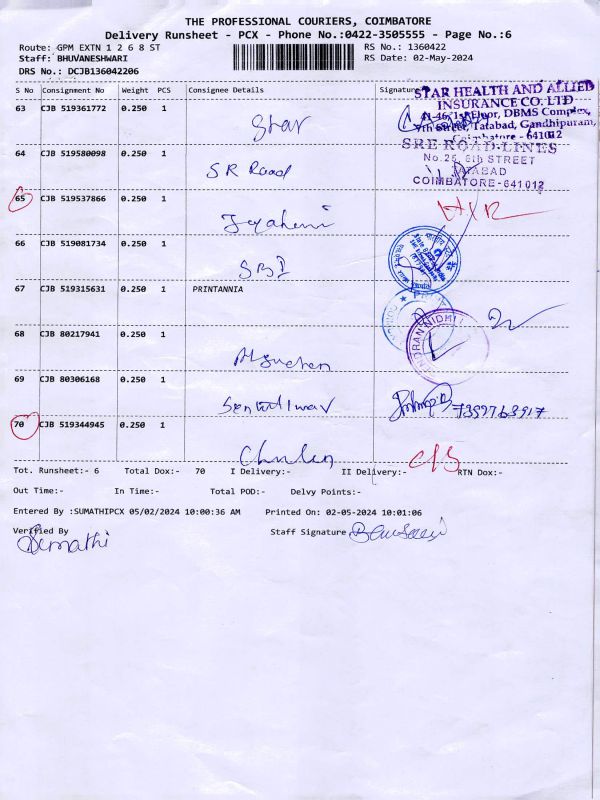 THE PROFESSIONAL COURIERS, COIMBATORE
Delivery Runsheet - PCX - Phone No.:0422-3505555 - Page No.:6
Route: GPM EXTN 1 2 6 8 ST
RS No.: 1360422
Staff: BHUVANESHWARI
RS Date: 02-May-2024
DRS No.: DCJB136042206
S No Consignment No Weight PCS Consignee Details Signature
63 CJB 519361772 0.250 1
Star
STAR HEALTH AND ALLIED
INSURANCE CO. LTD
41-46, 1st Floor, DBMS Complex,
7th Street, Tatabad, Gandhipuram,
Coimbatore - 641012
64 CJB 519580098 0.250 1
SR Road
SRE ROAD-LINES
No.25, 6th STREET
TATABAD
COIMBATORE-641012
65 CJB 519537866 0.250 1
66 CJB 519081734 0.250 1
SBI
67 CJB 519315631 0.250 1 PRINTANNIA
68 CJB 80217941 0.250 1
69 CJB 80306168 0.250 1
70 CJB 519344945 0.250 1
Tot. Runsheet:- 6 Total Dox:- 70 I Delivery:- II Delivery:- RTN Dox:-
Out Time:- In Time:- Total POD:- Delvy Points:-
Entered By :SUMATHIPCX 05/02/2024 10:00:36 AM Printed On: 02-05-2024 10:01:06
Verified By Staff Signature